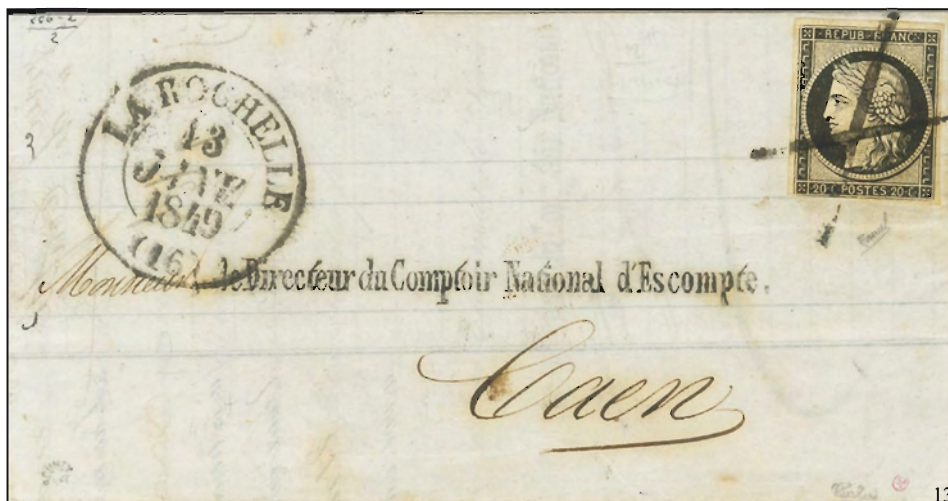 REPUB·FRANC
20 C POSTES 20 C
LA ROCHELLE
13
JANV
1849
(16)
Monsieur le Directeur du Comptoir National d'Escompte.
Caen
13